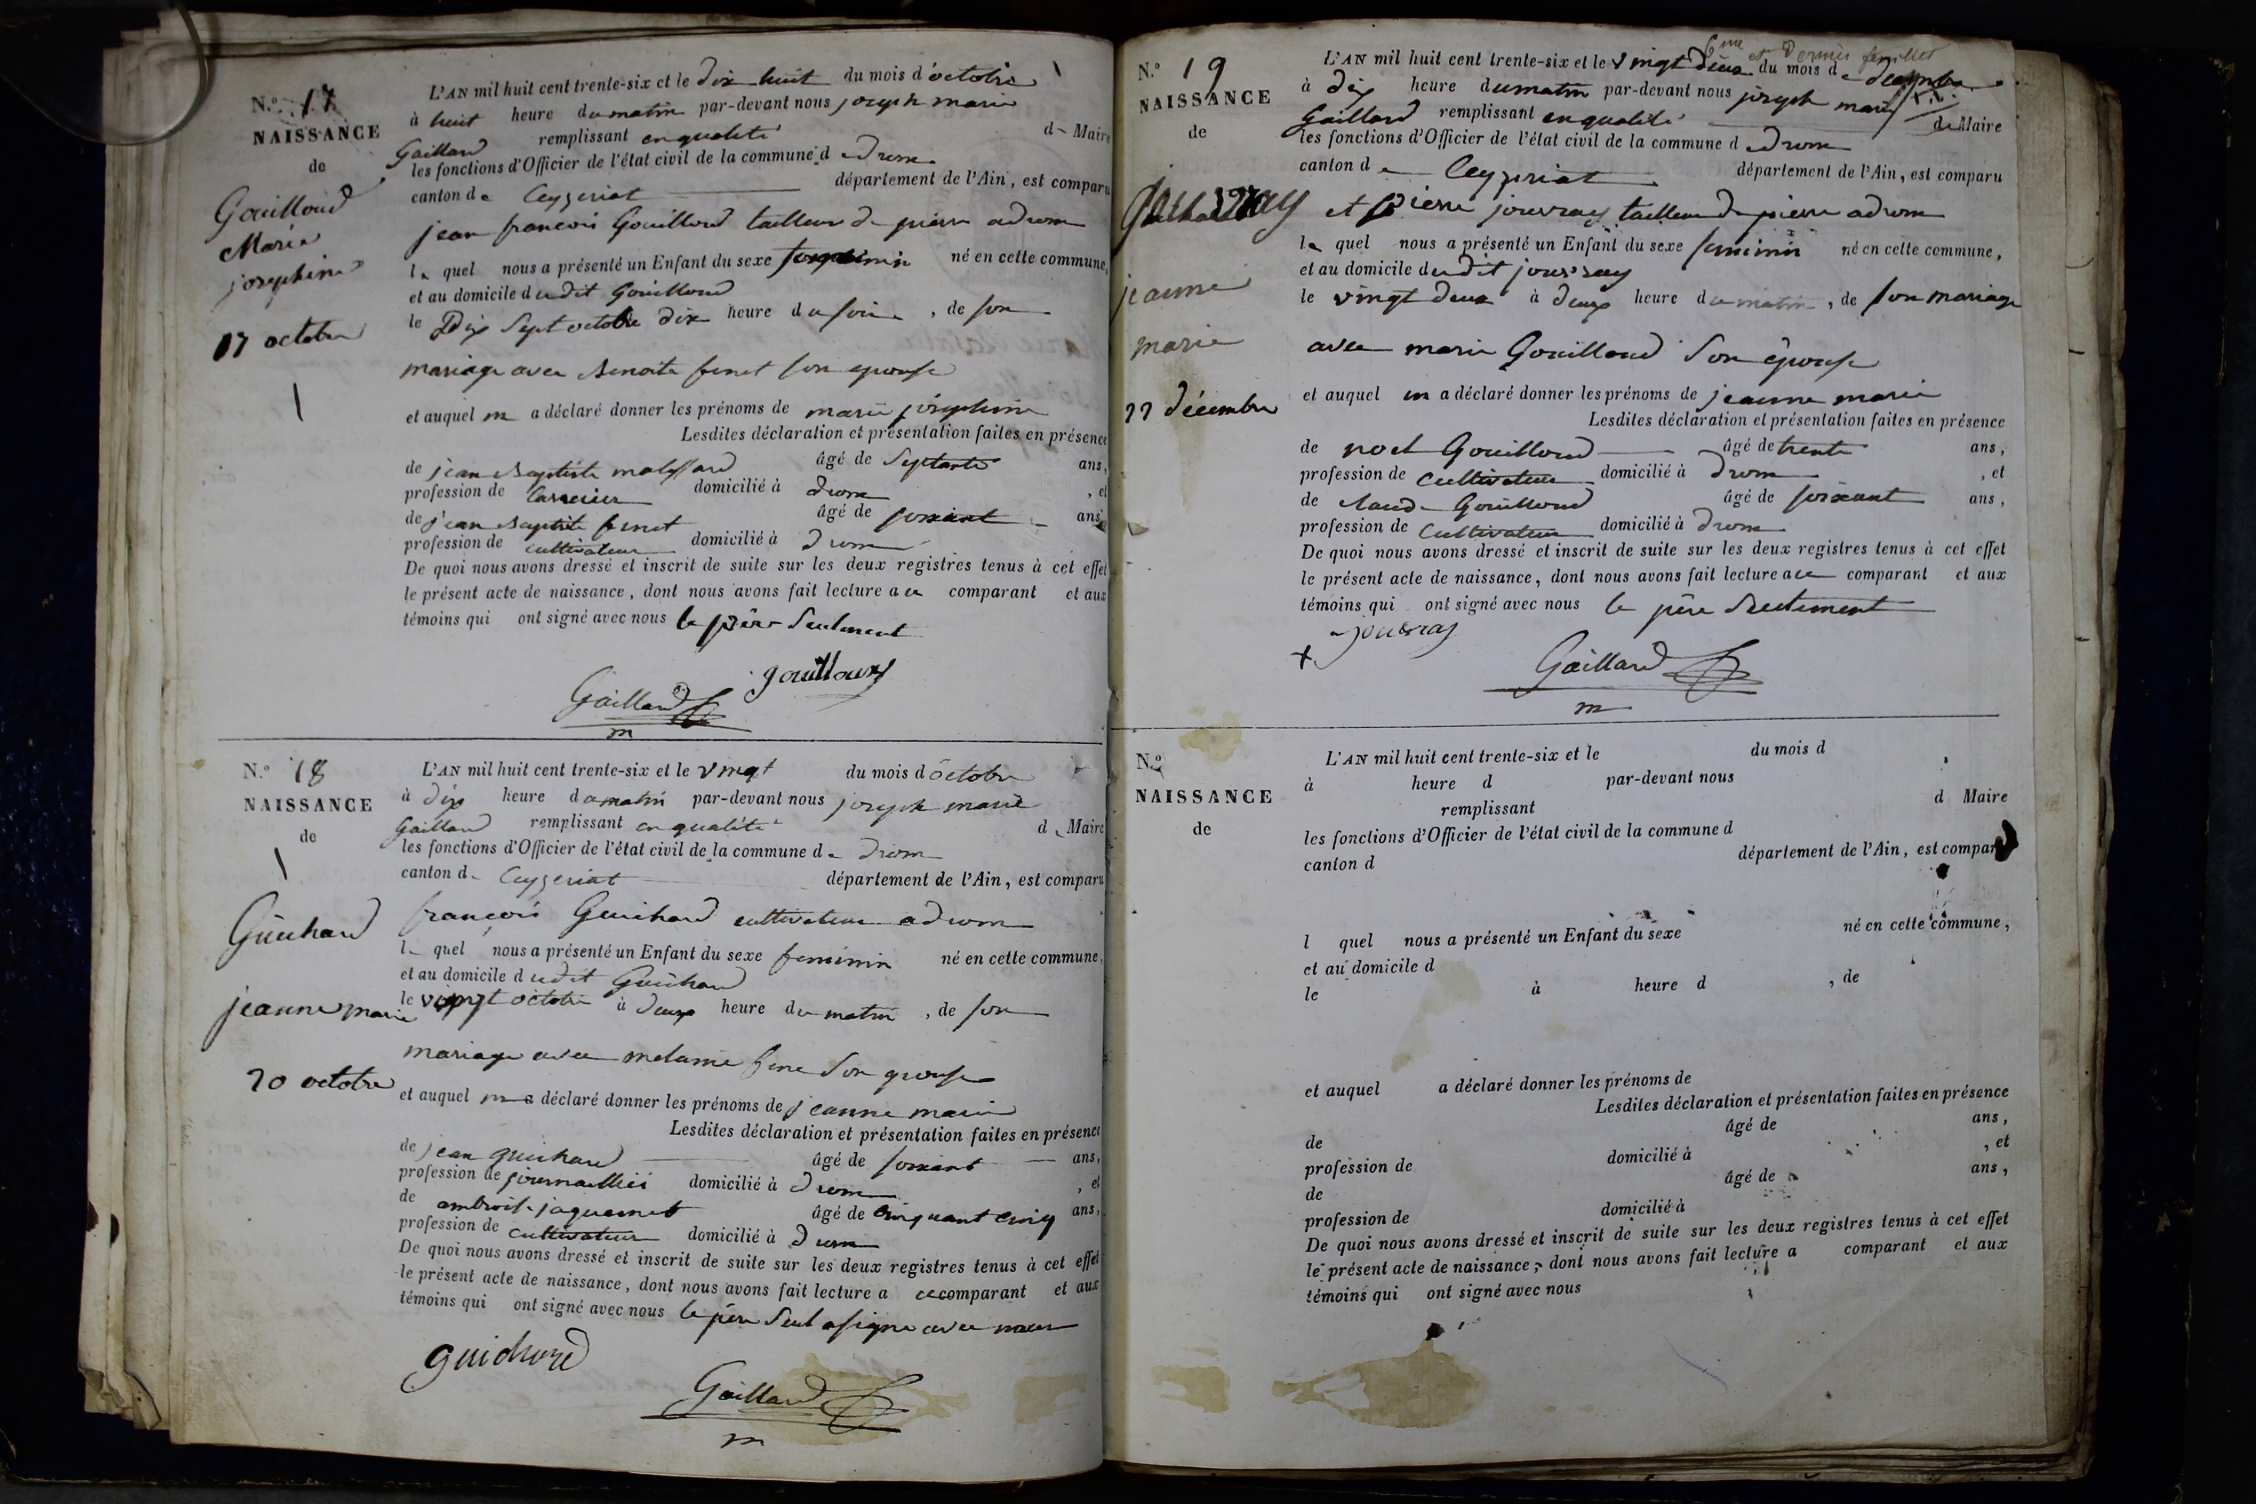 N.º 17
NAISSANCE
de
Gouilloud
Marie
josephine
17 octobre
L'AN mil huit cent trente-six et le dix huit du mois d'octobre
à huit heure du matin par-devant nous joseph marie
Gaillard remplissant en qualité de Maire
les fonctions d'Officier de l'état civil de la commune de Drom
canton de Ceyzeriat département de l'Ain, est comparu
jean françois Gouilloud tailleur de pierre a drom
le quel nous a présenté un Enfant du sexe feminin né en cette commune,
et au domicile dudit Gouilloud
le Dix Sept octobre dix heure du soir, de son
mariage avec Benoite finet son epouse
et auquel m a déclaré donner les prénoms de marie josephine
Lesdites déclaration et présentation faites en présence
de jean Baptiste âgé de septante ans,
profession de carrier domicilié à drom, et
de jean Baptiste finet âgé de soixant ans,
profession de cultivateur domicilié à Drom
De quoi nous avons dressé et inscrit de suite sur les deux registres tenus à cet effet
le présent acte de naissance, dont nous avons fait lecture au comparant et aux
témoins qui ont signé avec nous le père Seulement
gouilloux
Gaillard
m
N.º 18
NAISSANCE
de
Guichard
jeanne marie
20 octobre
L'AN mil huit cent trente-six et le vingt du mois d'octobre
à dix heure du matin par-devant nous joseph marie
Gaillard remplissant en qualité de Maire
les fonctions d'Officier de l'état civil de la commune de Drom
canton de Ceyzeriat département de l'Ain, est comparu
françois Guichard cultivateur a drom
le quel nous a présenté un Enfant du sexe feminin né en cette commune,
et au domicile dudit Guichard
le vingt octobre à deux heure du matin, de son
mariage avec melanie fine Son epouse
et auquel m a déclaré donner les prénoms de jeanne marie
Lesdites déclaration et présentation faites en présence
de jean guichard âgé de soixant ans,
profession de journaillier domicilié à Drom, et
de ambroise jaquemet âgé de cinquant cinq ans,
profession de cultivateur domicilié à Drom
De quoi nous avons dressé et inscrit de suite sur les deux registres tenus à cet effet
le présent acte de naissance, dont nous avons fait lecture a ce comparant et aux
témoins qui ont signé avec nous le père Seul a signé avec nous
guichard
Gaillard
m
6me et Dernier feuillet
N.º 19
NAISSANCE
de
jouvray
jeanne
marie
22 décembre
L'AN mil huit cent trente-six et le vingt deux du mois de décembre
à dix heure du matin par-devant nous joseph marie
Gaillard remplissant en qualité de Maire
les fonctions d'Officier de l'état civil de la commune de Drom
canton de Ceyzeriat département de l'Ain, est comparu
et pierre jouvray tailleur de pierre a drom
le quel nous a présenté un Enfant du sexe feminin né en cette commune,
et au domicile dudit jouvray
le vingt deux à deux heure du matin, de son mariage
avec marie Gouilloud Son épouse
et auquel m a déclaré donner les prénoms de jeanne marie
Lesdites déclaration et présentation faites en présence
de noel Gouilloud âgé de trente ans,
profession de cultivateur domicilié à Drom, et
de claude Gouilloud âgé de soixant ans,
profession de cultivateur domicilié à Drom
De quoi nous avons dressé et inscrit de suite sur les deux registres tenus à cet effet
le présent acte de naissance, dont nous avons fait lecture au comparant et aux
témoins qui ont signé avec nous le père Seulement
jouvray
Gaillard
m
N.º
NAISSANCE
de
L'AN mil huit cent trente-six et le du mois d
à heure d par-devant nous
remplissant d Maire
les fonctions d'Officier de l'état civil de la commune d
canton d département de l'Ain, est comparu
l quel nous a présenté un Enfant du sexe né en cette commune,
et au domicile d
le à heure d , de
et auquel a déclaré donner les prénoms de
Lesdites déclaration et présentation faites en présence
de âgé de ans,
profession de domicilié à , et
de âgé de ans,
profession de domicilié à
De quoi nous avons dressé et inscrit de suite sur les deux registres tenus à cet effet
le présent acte de naissance, dont nous avons fait lecture a comparant et aux
témoins qui ont signé avec nous